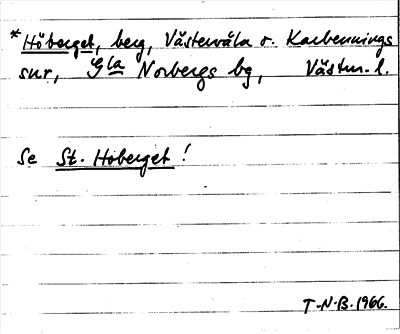 *Höberget, berg, Västervåla o. Karbennings
snr, Gla Norbergs bg, Västm. l.
Se St. Höberget!
T.N.B. 1966.